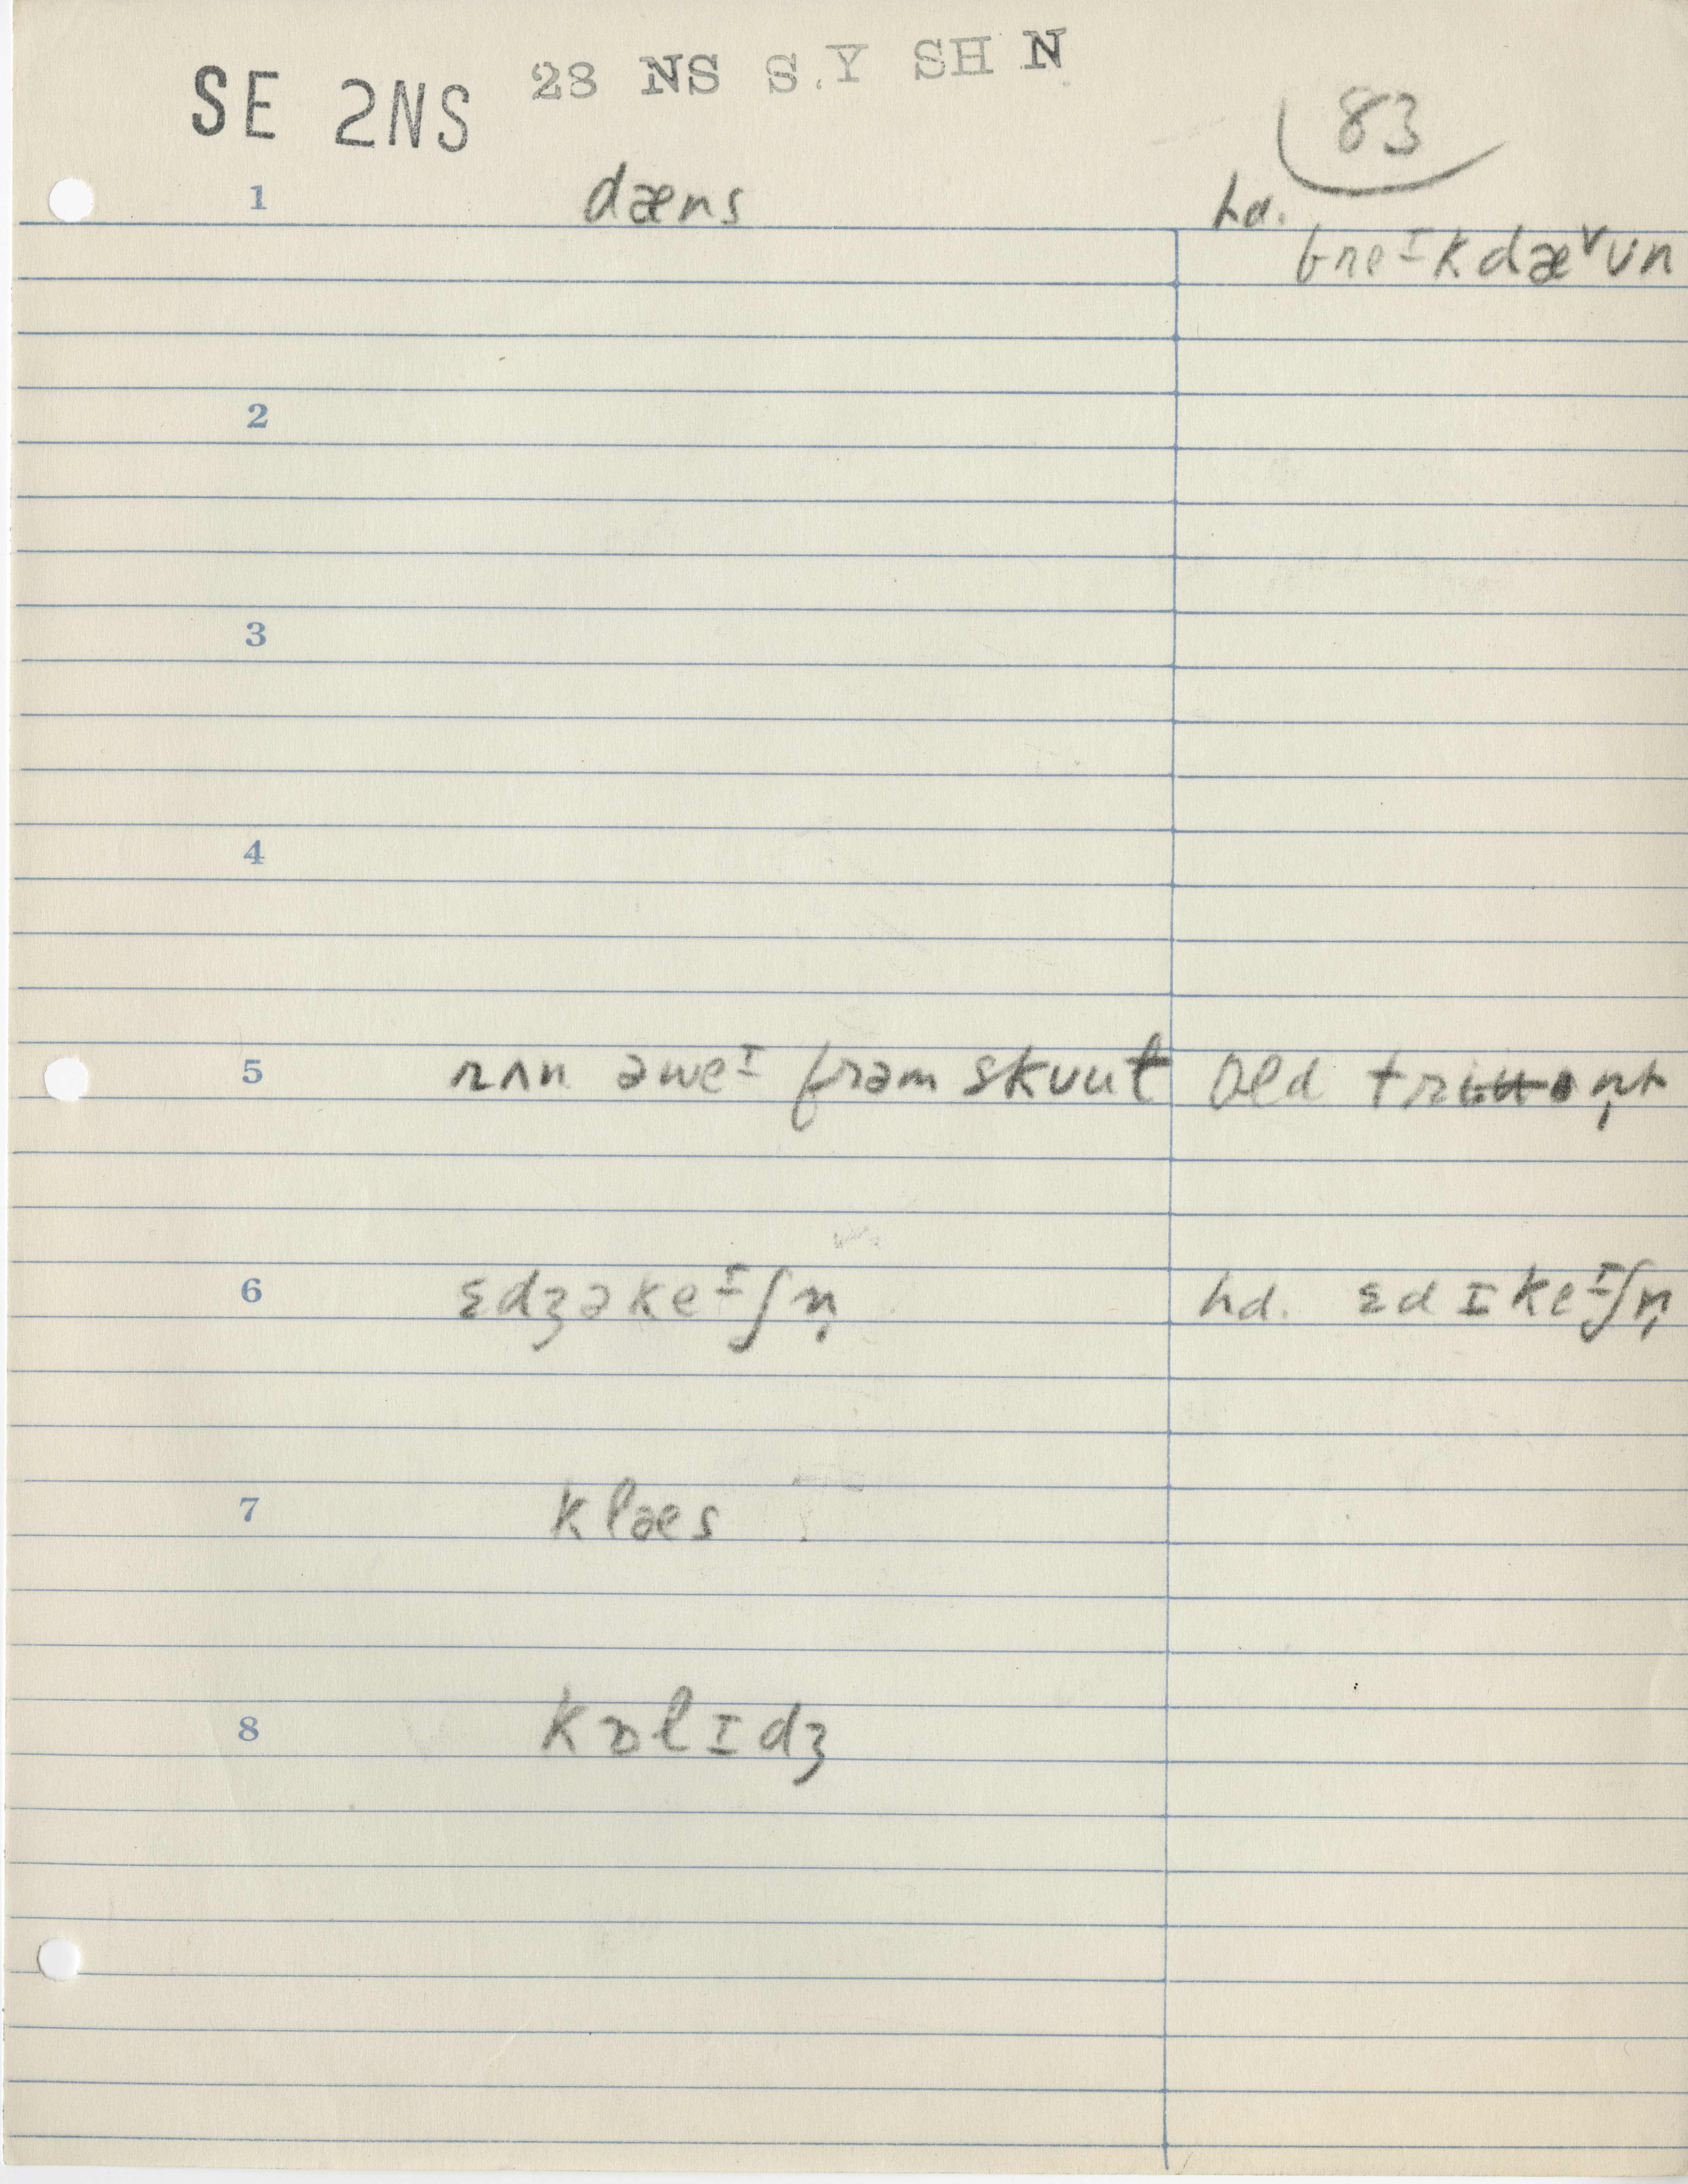 SE 2NS 28 NS S.Y SH N
83
1 dæns hd.
breᴵkdæ˅ʋn
2
3
4
5 rʌn əweᴵ frəm skuut Old
6 ɛdʒəkeᴵʃn̩ hd. ɛdɪkeᴵʃn̩
7 klæs
8 kɒlɪdʒ